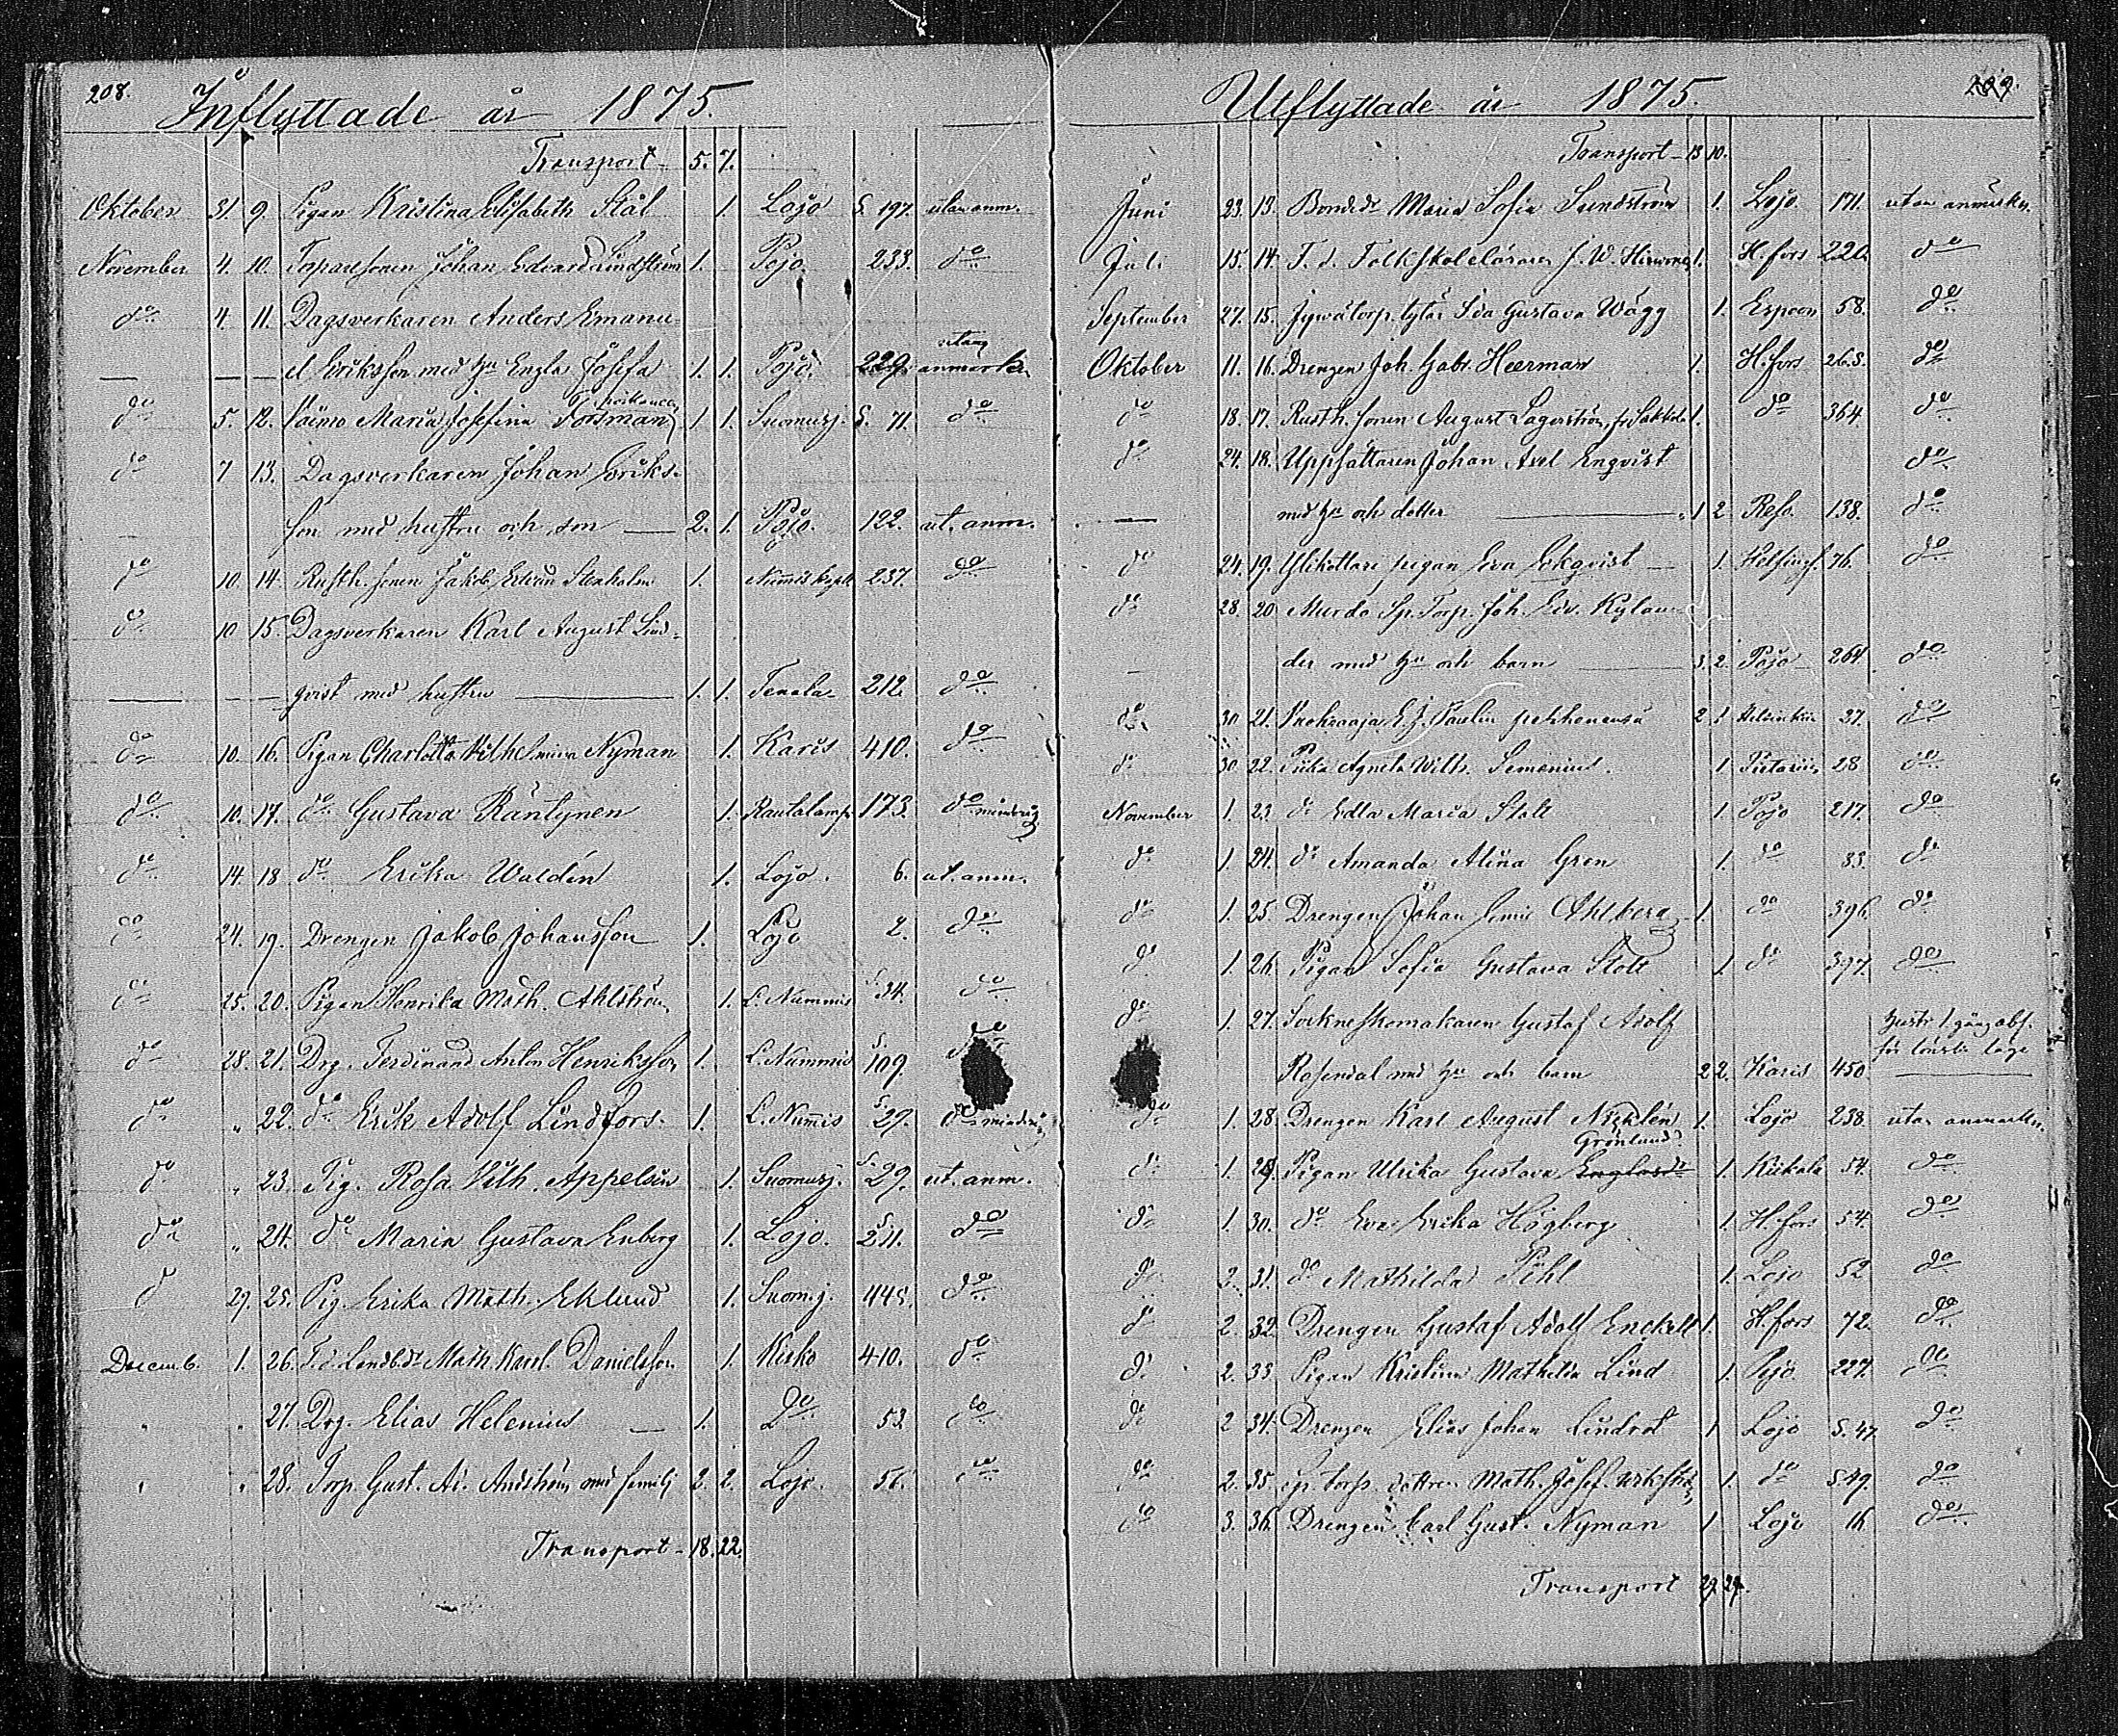 208.
Inflyttade år 1875.
Transport 5. 7.
Oktober 31. 9. Pigan Kristina Elisabeth Stål 1. Lojo S. 197. utan anm.
November 4. 10. Torparesonen Johan Edvard Lindström 1. Pojo. 233. do
do 4. 11. Dagsverkaren Anders Emanu-
el Eriksson med hu Engla Josefa 1. 1. Pojo. 229. utan anmärkn.
do 5. 12. Vaimo Maria Josefina Forsman 1 1. Suomusj. S. 71. do
do 7 13. Dagsverkaren Johan Eriks-
son med hustru och son 2. 1. Pojo. 122. ut. anm.
do 10. 14. Rusth. sonen Jakob Edvin Stenholm 1. Nummis kapell 237. do
do 10 15. Dagsverkaren Karl August Lind-
qvist med hustru 1. 1. Tenala 212. do
do 10. 16. Pigan Charlotta Vilhelmina Nyman 1. Karis 410. do
do 10. 17. do Gustava Räntynen 1. Rautalamp. 173. do
do 14. 18 do Erika Waldén 1. Lojo. 6. ut. anm.
do 24. 19. Drengen Jakob Johansson 1. Lojo 2. do
do 25. 20. Pigan Henrika Math. Ahlström 1. L. Nummis S. 34. do
do 28. 21. Drg. Ferdinand Anton Henriksson 1. L. Nummis S. 109. do
do " 22. do Erik Adolf Lindfors. 1. L. Nummis S. 29. do
do " 23. Pig. Rosa Vilh. Appelsin 1. Suomusj. S. 29. ut. anm.
do " 24. do Maria Gustava Enberg 1. Lojo. S. 211. do
d 29. 25. Pig. Erika Math. Eklund 1. Suom.j. 445. do
Decemb. 1. 26. Math. Karol. Danielsson 1. Kisko 410. do
" " 27. Drg. Elias Helenius 1. Do 53. do
" " 28. Torp. Gust. Ad. med familj 2. 2. Lojo. 56. do
Transport 18. 22.
209.
Utflyttade år 1875.
Transport 13 10.
Juni 23. 13. Bonded. Maria Sofia Sundström 1. Lojo. 171. utan anmärkn.
Juli 15. 14. F. d. Folkskoleläraren J. W. 1. H:fors 220. do
September 27. 15. Ida Gustava Wägg 1. Espoon 58. do
Oktober 11. 16. Drengen Joh. Gabr. Heerman 1. H:fors 263. do
do 18. 17. Rusth. sonen August Lagerström 1. do 364. do
do 24. 18. Uppsättaren Johan Axel Enqvist do
med hu och dotter 1 2 Reso. 138. do
do 24. 19. pigan Eva Ekqvist 1. Helsingf. 76. do
do 28. 20 Murdo Sp. Torp. Joh. Edv. Kylan-
der med hu och barn 3. 2. Pojo 264 do
do 30. 21. E. J. Paulin 2. 1 Helsinkiin 37. do
do 30 22. Piika Agneta Wilh. Semenius. 1. 28 do
November 1. 23 do Edla Maria Stolt 1. Pojo 217. do
do 1. 24. do Amanda Alina Gren 1. do 33. do
do 1. 25. Drengen Johan Emil Ahlberg 1. do 396. do
do 1. 26. Pigan Sofia Gustava Stolt 1. do 397. do
do 1. 27. Sockneskomakaren Gustaf Adolf
Rosendal med hu och barn 2 2. Karis 450.
do 1. 28. Drengen Karl August Nicklén 1. Lojo 238. utan anmärkn.
Grönlund
do 1. 29. Pigan Ulrika Gustava 1. Kiikala 54. do
do 1. 30. do Eva Erika Högberg 1. H:fors 54. do
do 2. 31. do Mathilda Pihl 1. Lojo 52 do
do 2. 32. Drengen Gustaf Adolf Enckell 1. H:fors 72. do
do 2. 33. Pigan Kristina Mathilda Lind 1. Pojo. 227. do
do 2 34. Drengen Elias Johan Lindrot 1 Lojo S. 47 do
do 2. 35. torp. dottren Math. Josef. 1. do S. 49. do
do 3. 36. Drengen Carl Gust. Nyman 1 Lojo 16 do
Transport 29 24.